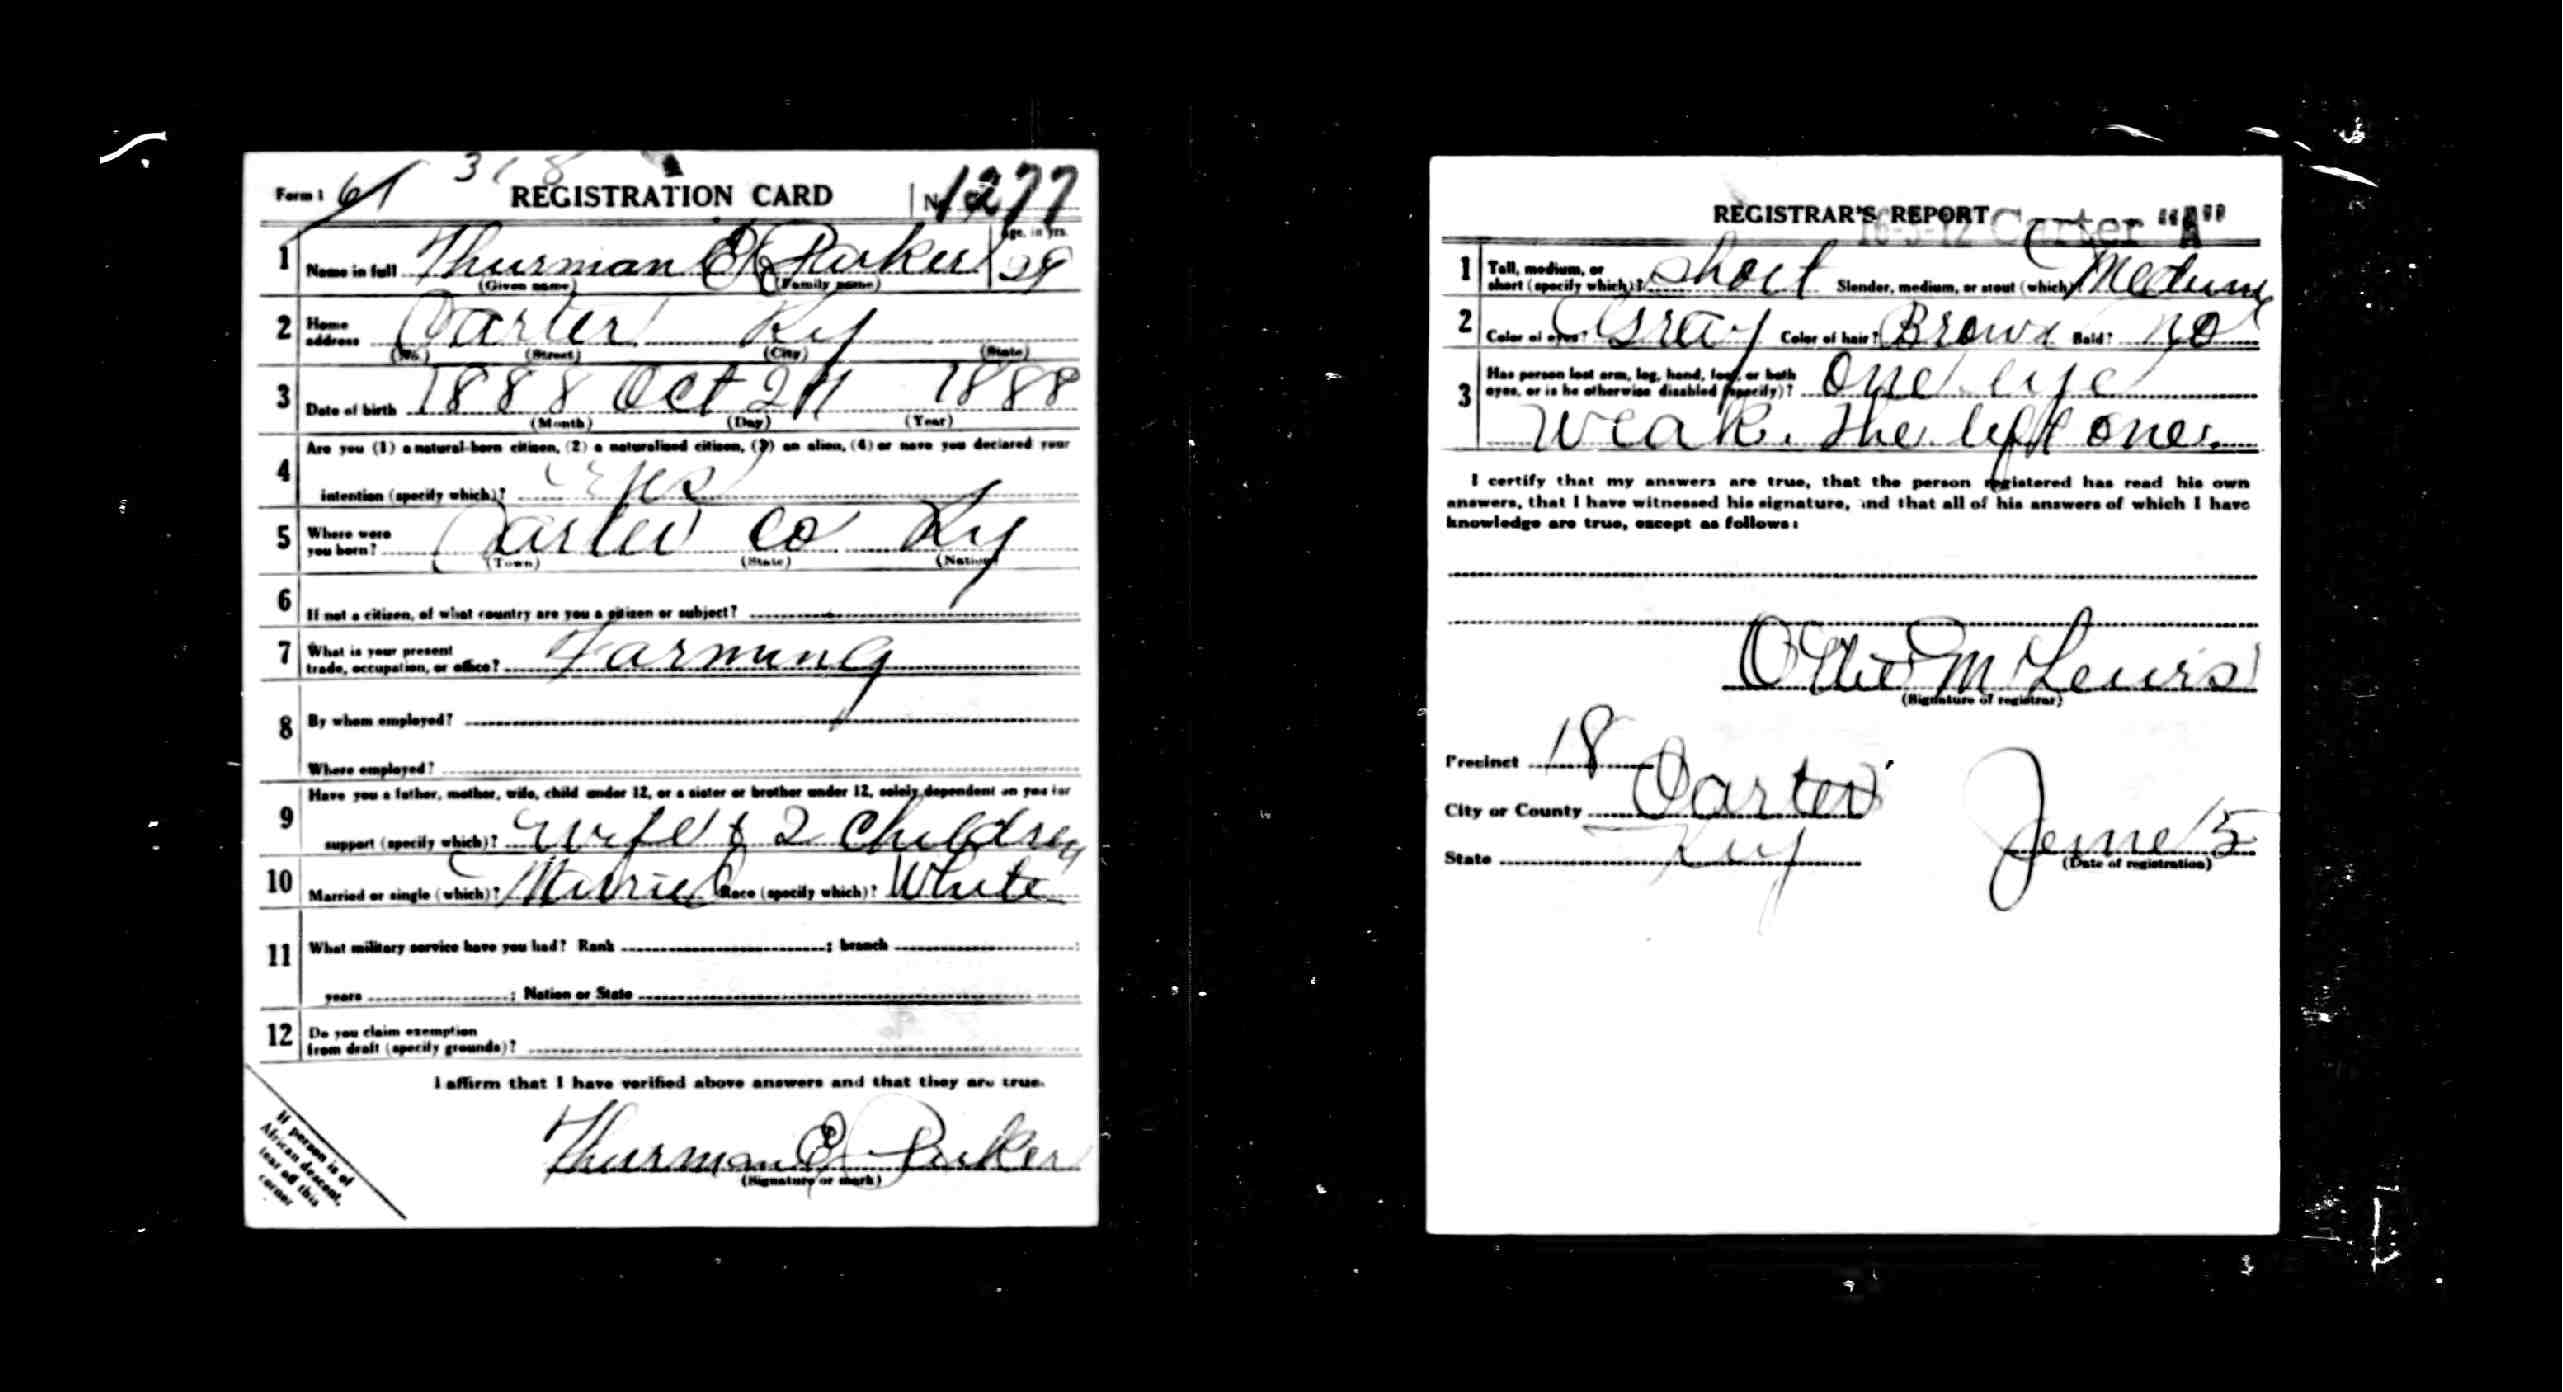 Form 1 61 318 REGISTRATION CARD No. 1277
1 Name in full Thurman E Parker Age, in yrs. 28
(Given name) (Family name)
2 Home address Carter Ky
(No.) (Street) (City) (State)
3 Date of birth 1888 Oct 24 1888
(Month) (Day) (Year)
4 Are you (1) a natural-born citizen, (2) a naturalized citizen, (3) an alien, (4) or have you declared your
intention (specify which)? Yes
5 Where were you born? Carter Co Ky
(Town) (State) (Nation)
6 If not a citizen, of what country are you a citizen or subject?
7 What is your present
trade, occupation, or office? Farming
8 By whom employed?
Where employed?
9 Have you a father, mother, wife, child under 12, or a sister or brother under 12, solely dependent on you for
support (specify which)? Wife & 2 Children
10 Married or single (which)? Married Race (specify which)? White
11 What military service have you had? Rank ; branch
years ; Nation or State
12 Do you claim exemption
from draft (specify grounds)?
I affirm that I have verified above answers and that they are true.
Thurman E Parker
(Signature or mark)
If person is of
African descent,
tear off this
corner
REGISTRAR'S REPORT
16-3-12 Carter "A"
1 Tall, medium, or
short (specify which)? Short Slender, medium, or stout (which)? Medium
2 Color of eyes? Gray Color of hair? Brown Bald? No
3 Has person lost arm, leg, hand, foot, or both
eyes, or is he otherwise disabled (specify)? One eye
weak. the left one.
I certify that my answers are true, that the person registered has read his own
answers, that I have witnessed his signature, and that all of his answers of which I have
knowledge are true, except as follows:
M Lewis
(Signature of registrar)
Precinct 18
City or County Carter
State Ky June 5
(Date of registration)